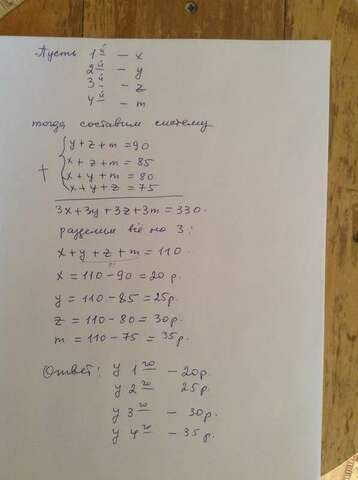 Пусть 1й – x
2й – y
3й – z
4й – m
тогда составим систему
y+z+m=90
x+z+m=85
+ x+y+m=80
x+y+z=75
3x+3y+3z+3m=330.
разделим всё на 3:
x+y+z+m=110
x=110-90=20 р.
y=110-85=25р.
z=110-80=30р.
m=110-75=35р.
Ответ: у 1го – 20р.
у 2го 25р.
у 3го – 30р.
у 4го – 35 р.